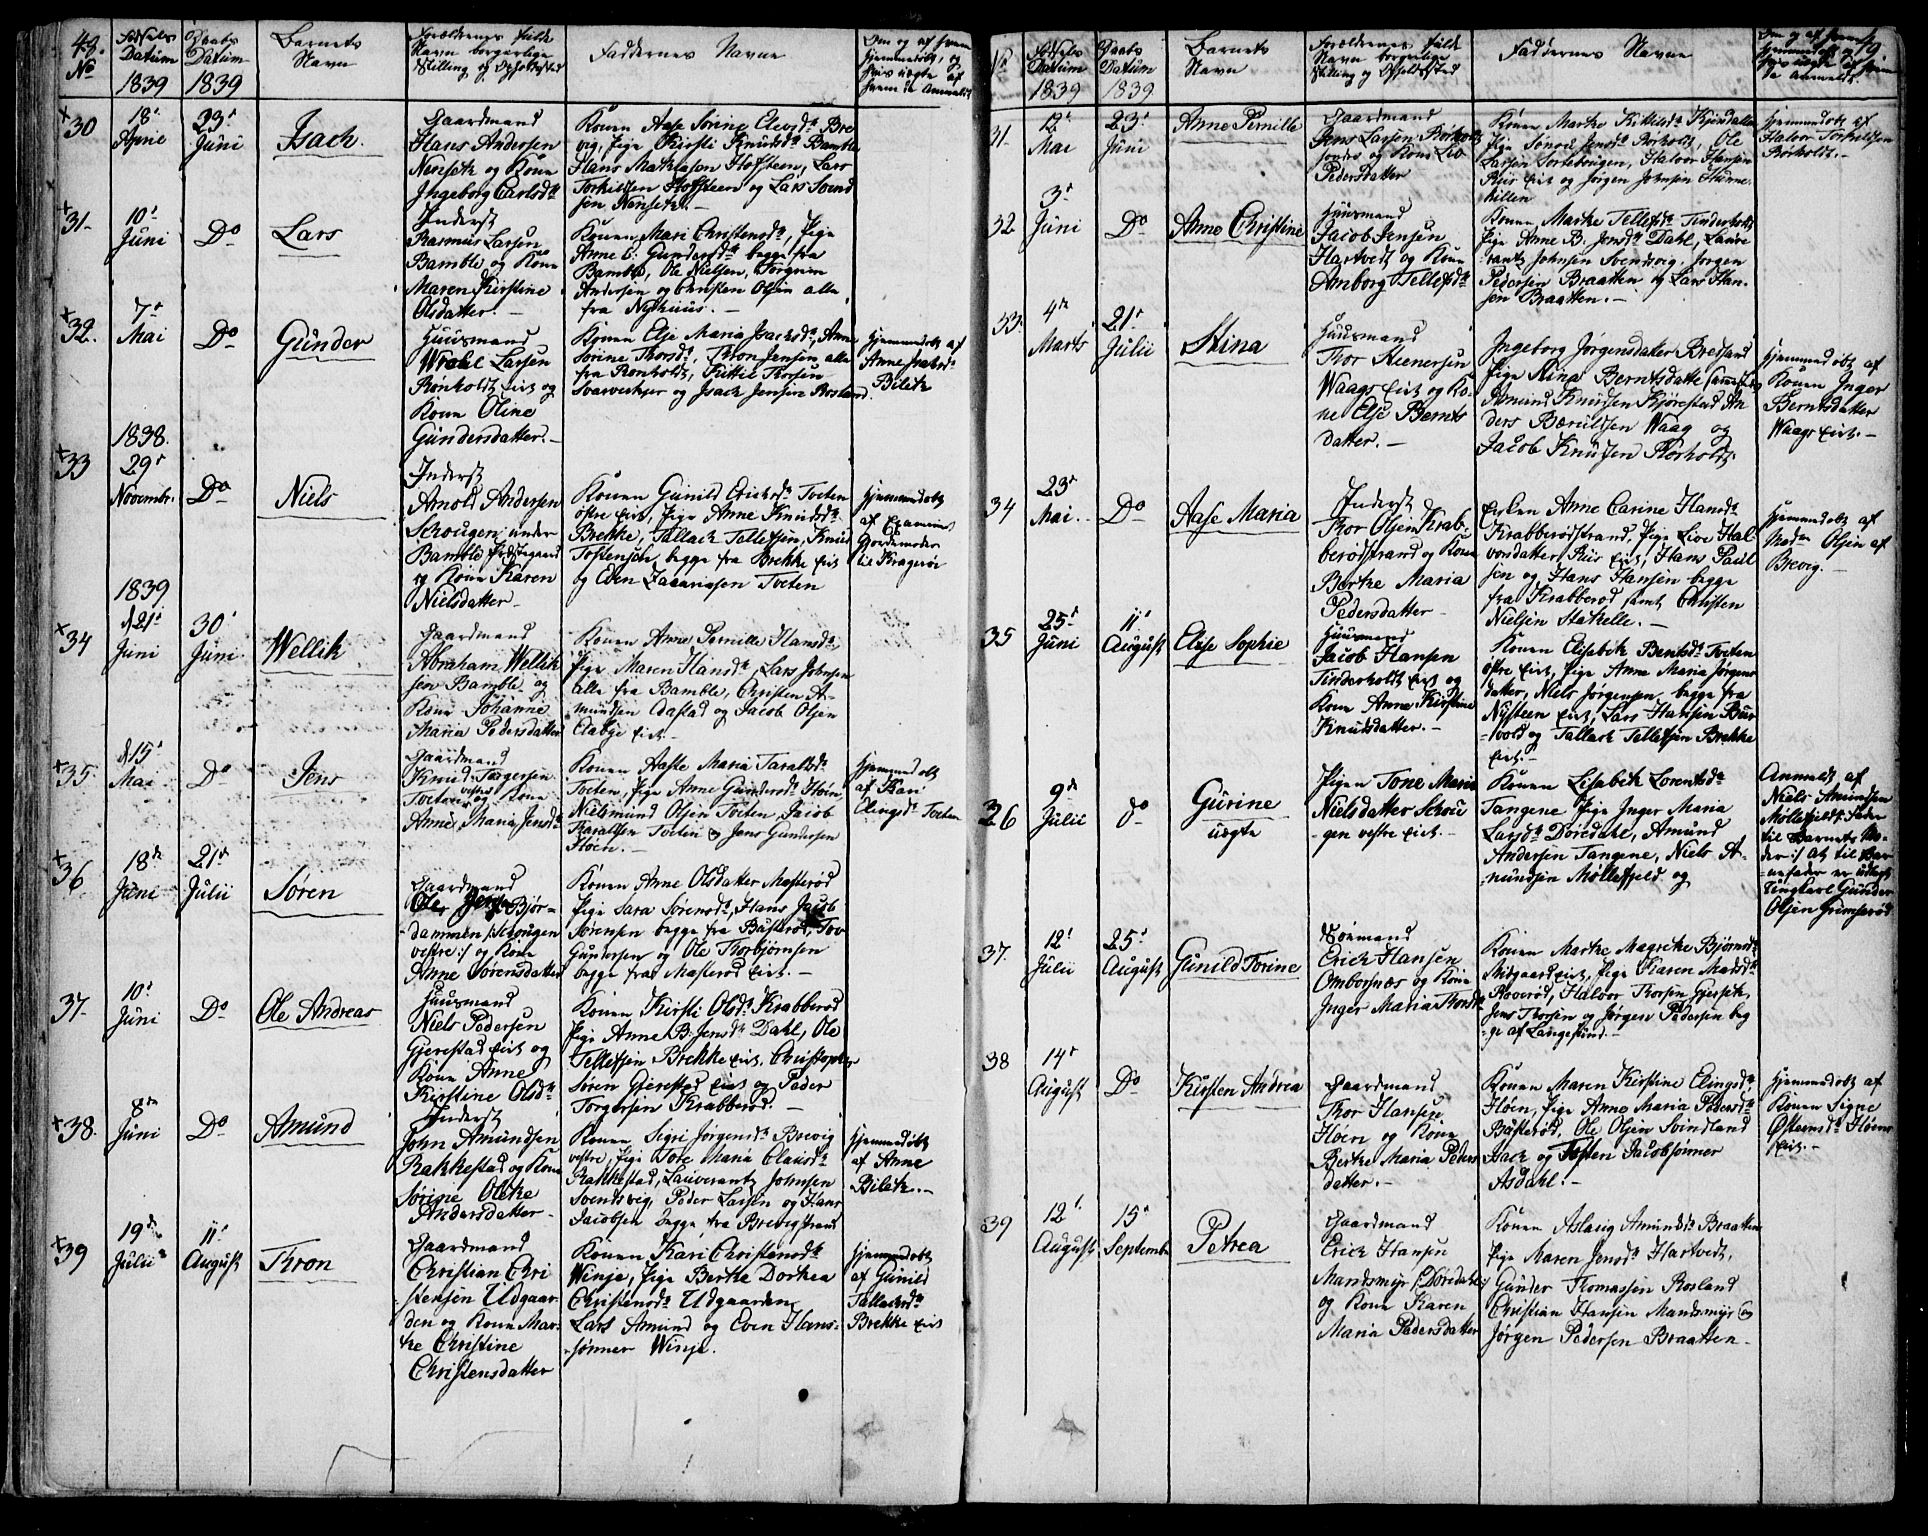 48.
No
Fødsels Datum 1839
Daabs Datum 1839
Barnets Navn
Forældrenes fulde Navn borgerlige Stilling og Opholdsted
Faddernes Navne
Om og af hvem hjemmedøbt, og hvis uægte af hvem da Anmeldt
+30
18d Aprie
23d Juni
Isach.
Gaardmand
Hans Andersen
Nenseth og Kone
Ingeborg Carlsdtr
Konen Aase Sørine Elevsdtr Bre
vig, Pige Kirsti Knudsdtr Bamble
Hans Mathiason Hafsteen, Lars
Torkildsen Hafsteen og Lars Svend
sen Nenseth. –
+31-
10d Juni
Do
Lars
Inderst
Rasmus Larsen
Bamble og Kone
Maren Kirstine
Olsdatter. –
Konen Mari Christensdtr, Pige
Anne E: Gundersdtr begge fra
Bamble, Ole Nielsen, Torgrim
Andersen og Christen Olsen alle
fra Nyehuus. –
+32.
7d Mai
Do
Gunder
Huusmand
Wrahl Larsen
Rønholdt Eiet og
Kone Oline
Gundersdatter. –
Konen Else Maria Isachsdtr, Anne
Sørine Thorsdtr, Thron Jensen alle
fra Rønholdt, Kittil Thorsen
Svarverkjer og Isach Jensen Rosland
hjemmedøbt af
Anne Isachsdtr
Bileth
+33
1838.
29d Novembr.
Do
Niels
Inderst
Arnold Andersen
Schougen under
Bamble Præstegaard
og Kone Karen
Nielsdatter –
Konen Gunild Erichsdtr Tveten
østre Eiet, Pige Anne Knudsdtr
Brekke, Tallack Tellefsen, Knud
Tostensen, begge fra Brekke Eiet
og Even Zacariasen Tveten
hjemmedøbt
af Examinet
Jordemoder
Lie Kragerøe
+34
1839
d21d Juni
30d Juni
Wellik
Gaardmand
Abraham Wellik
sen Bamble og
Kone Johanne
Maria Pedersdatter
Konen Anne Pernille Hansdtr
Pige Maren Hansdtr, Lars Johnsen
alle fra Bamble, Christen A-
mundsen Aastad og Jacob Olsen
Aabye Eiet –
+35.
d15d Mai
Do
Jens
Gaardmand
Knud Torgersen
Tveten vestre og Kone
Anne Maria Jensdtr
Konen Aaste Maria Taraldsdtr
Tveten, Pige Anne Gundersdtr Høen
Nielsmund Olsen Tveten Jacob
Taraldsen Tveten og Jens Gundersen
Høen. –
hjemmedøbt
af Kari
Elingsdtr Tveten
+36.
18d Juni
21d Julii
Søren
Gaardmand
Ole Bjør-
dammen /:Skougen
vestre:/ og Kone
Anne Sørensdatter
Konen Anne Olsdatter Masterød
Pige Sara Sørensdtr, Hans Jacob
Sørensen begge fra Basterød, Tov
Gundersen og Ole Thorbjørnsen
begge fra Masterød Eiet. –
37-
10d Juni
Do
Ole Andreas
Huusmand
Niels Pedersen
Gjerestad Eiet og
Kone Anne
Kirstine Olsdtr
Konen Kirsti Olsdtr Krabberød
Pige Anne B: Jensdtr Dahl, Ole
Tellefsen Brekke Eiet, Christopher
Søren Gjerestad Eiet og Peder
Torgersen Krabberød. –
+38.
8d Juni
Do
Amund
Inderst
John Amundsen
Rakkestad og Kone
Sørine Olethe
Andersdatter –
Konen Sigri Jørgensdtr Brevig
vestre, Pige Tore Maria Clausdtr
Rakkestad, Lauverantz Johnsen
Svensvig, Peder Larsen og Hans
Jacobsen begge fra Brevigstrand
hjemmedøbt
af Anne
Bileth. –
+39
19d Julii
11d August
Thron
Gaardmand
Christian Chri
stensen Udgaar-
den og Kone Mar-
the Christine
Christensdatter
Konen Kari Christensdtr
Winje, Pige Berthe Dorthea
Christensdtr Udgaarden
Lars Amund og Even Hans-
sønner Winje.
hjemmedøbt
af Gunild
Tallachsdtr
Brekke Eiet
49
No
Fødsels Datum 1839
Daabs Datum 1839
Barnets Navn
Forældrenes fulde Navn borgerlige Stilling og Opholdsted
Faddernes Navne
Om og af hvem hjemmedøbt og hvis uægte af hvem da Anmeldt.
31.
12d Mai
23d Juni
Anne Pernille
Gaardmand
Jens Larsen Rørholt
fordes og Kone Liv
Pedersdatter
Konen Marthe Kittilsdtr Kjendalen
Pige Jensdtr Rørholdt, Ole
Larsen Tortebougen, Halvor Hansen
Riis Eiet og Jørgen Johnsen Hulme-
killen
hjemmedøbt af
Halvor Torkildsen
Rørholdt. –
32
3d Juni
Do
Anne Christine
Huusmand
Jacob Jensen
Hartvedt og Kone
Amborg Tellefsdtr
Konen Marthe Tellefsdtr Tinderholdt
Pige Anne B: Jensdtr Dahl, Lauve
rantz Johnsen Svendsvig, Jørgen
Pedersen Braatten og Lars Han-
sen Braatten. –
33.
4de Marts
21d Julii
Stina
Huusmand
Thor Steenersen
Waags Eiet og Ko-
ne Else Bernts
datter. –
Ingeborg Jørgensdatter Bredsand
Pige Nina Berntsdatter sammested
Asmund Knudsen Kjørestad An
ders Bærulfsen Waag og
Jacob Knudsen Rørholdt
hjemmedøbt af
Konen Inger
Berntsdatter
Waags Eiet. –
34
23d Mai.
Do
Aase Maria
Inderst
Thor Olsen Krab-
berødstrand og Kone
Berthe Maria
Pedersdatter –
Enken Anne Carine Hansdtr
Krabberødstrand, Pige Live Hal
vorsdatter Riis Eiet, Hans Paul
sen og Hans Hansen begge
fra Krabberød samt Christen
Nielsen Stathelle. –
hjemmedøbt af
Madm Olsen af
Brevig. –
35
25d Juni
11d August
Elise Sophie
Huusmand
Jacob Hansen
Tinderholdt Eiet og
Kone Anne Kirstine
Knudsdatter. –
Konen Elisebeth Bentsdtr Tveten
østre Eiet, Pige Anne Maria Jørgens
datter, Niels Jørgensen begge fra
Nysteen Eiet, Lars Hansen Bur
vold og Tallack Tellefsen Brekke
Eiet. –
36
9d Julii
do
Gurine
uægte
Pigen Tone Maria
Nielsdatter Schou
gen vestre Eiet. –
Konen Lisabeth Lorentsdtr
Tangene Pige Inger Maria
Larsdtr Doredahl, Amund
Andersen Tangene, Niels A-
mundsen Møllefjeld og
Anmeldt af
Niels Amundsen
Møllefjeld /: Fader
til Barnets Mo-
der :/ at til Bar-
nefader er udlagt
Ungkarl Gunder
Olsen Grimsrød
37.
12d Julii
25d August
Gunild Torine
Søemand
Erich Hansen
Ombornæs og Kone
Inger Maria Thorsdtr
Konen Marthe Magrethe Bjørnsdtr
Midgaard Eiet, Pige Karen Madsdtr
Røverød, Halvor Thorsen Gjerseth,
Jens Thorsen og Jørgen Pedersen beg
ge af Langesund –
38
14d August
Do
Kirsten Andrea
Gaardmand
Thor Hansen
Høen og Kone
Berthe Maria Peders
datter. –
Konen Maren Kirstine Elingsdtr
Høen, Pige Anne Maria Pedersdtr
Basterød, Ole Olsen Svindland
Isach og Tosten Jacobsønner
Asdahl. –
hjemmedøbt af
Konen Signe
Østensdtr Høens
Eiet. –
39
12d August
15d Septembr
Petrea
Gaardmand
Erich Hansen
Mandsmyr /:Doredahl:/
og Kone Karen
Maria Pedersdatter
Konen Aslaug Amundsdtr Braatten
Pige Maren Jensdtr Hartvedt,
Gunder Thomassen Rosland
Christian Hansen Mandsmyr og
Jørgen Pedersen Braatten –